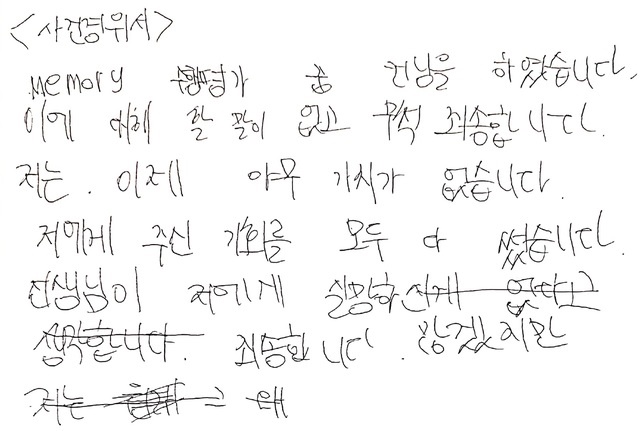 <사건경위서>
memory 수행평가 중 컨닝을 하였습니다.
이에 대해 할 말이 없고 무척 죄송합니다.
저는. 이제 아무 가치가 없습니다.
저에게 주신 기회를 모두 다 썼습니다.
선생님이 저에게 실망하신게 없다고
생각합니다. 죄송합니다. 많겠지만
저는